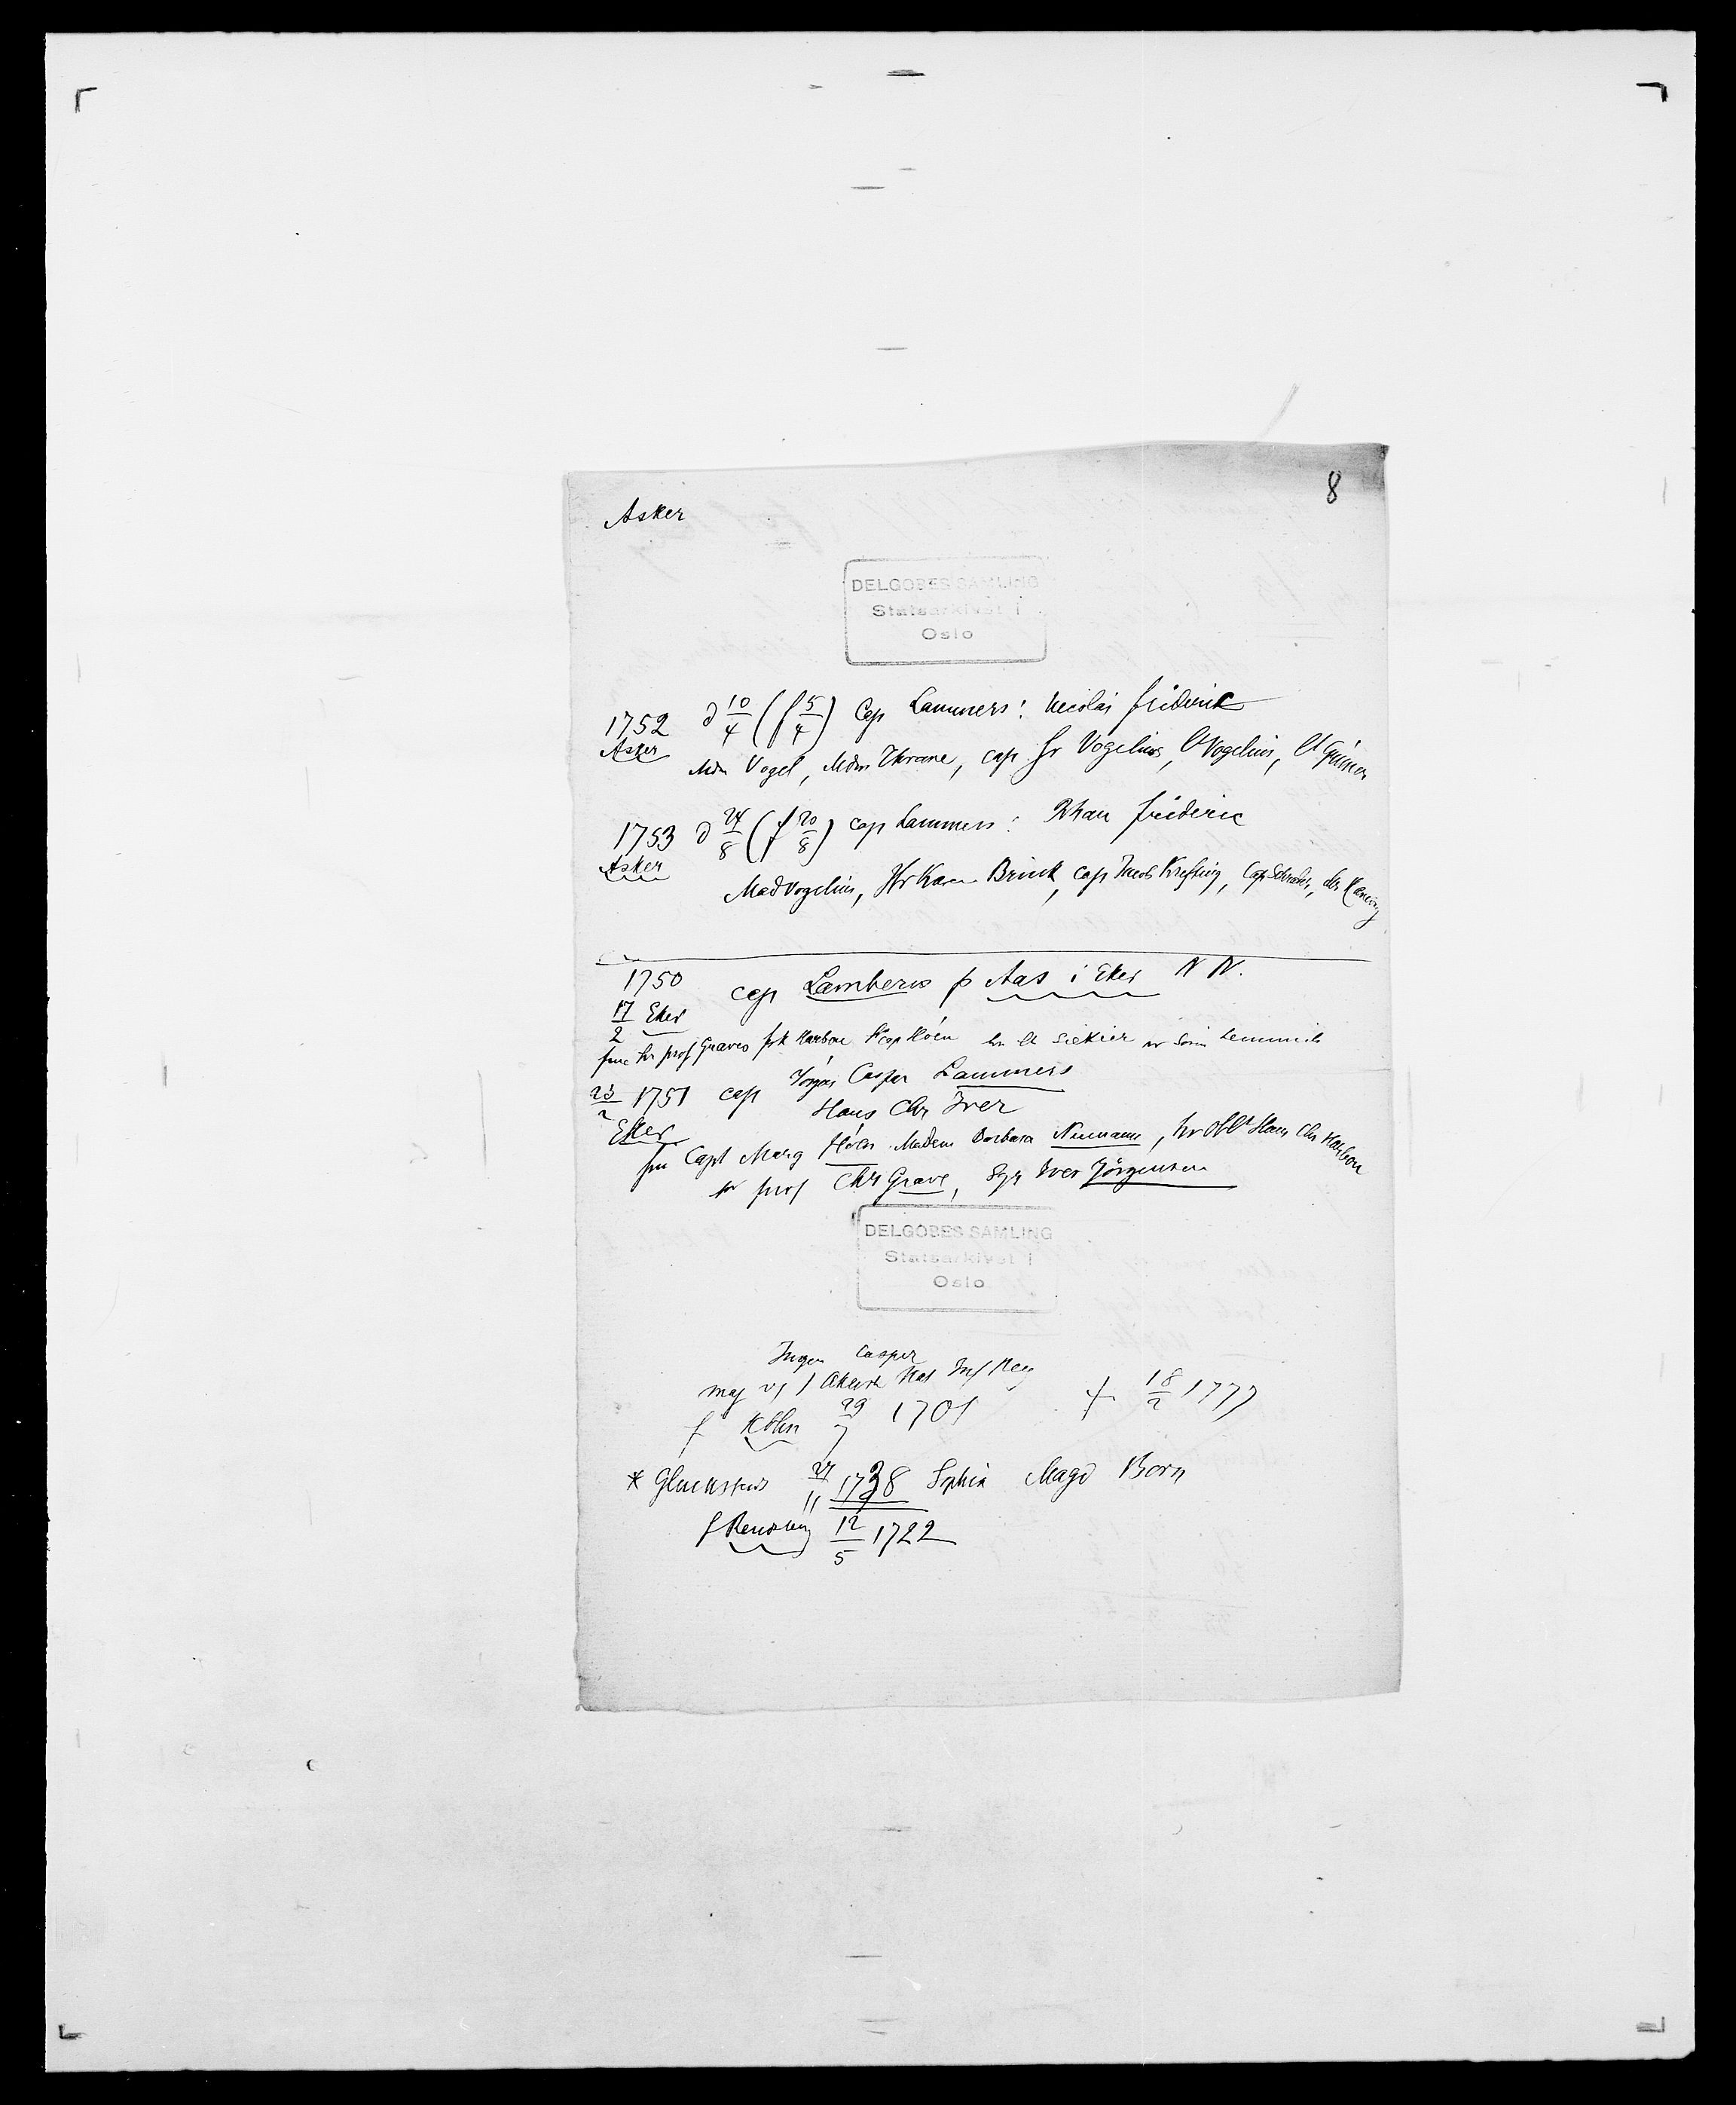 8
Asker
DELGOBES SAMLING
Statsarkivet i
Oslo
1752 d 10/4 (f 5/4) Cap Lammers: Nicolai friderick
Asker
Mdm Vogel, Mdm Thrane, cap fr Vogelius, Lt Vogelius, Lt
1753 d 24/8 (f 20/8) cap Lammers: Johan frideric
Asker
Mad Vogelius, Karen Brinck, cap Jacob Krefting, Cap
1750 cap Lambers p Aas i Eker N N.
17/2 Eker
prof Graves frk Harboe Cap Hoen hr Lt
23/2 1751 cap Jørgen Casper Lammers
Hans Chr Iver
Eker
fru Capt Marg Hoen Madem Barbara Neumann, hr Hans Chr Harboe
hr prof Chr Grave, Sgr Iver Jörgensen
DELGOBES SAMLING
Statsarkivet i
Oslo
Jurgen Casper
maj v/ 1 Akersh Nat Inf Reg
f Kbhn 29/7 1701 + 18/2 1777
* Gluckstad 27/11 1738 Sophia Magd Born
f Rendsburg 12/5 1722